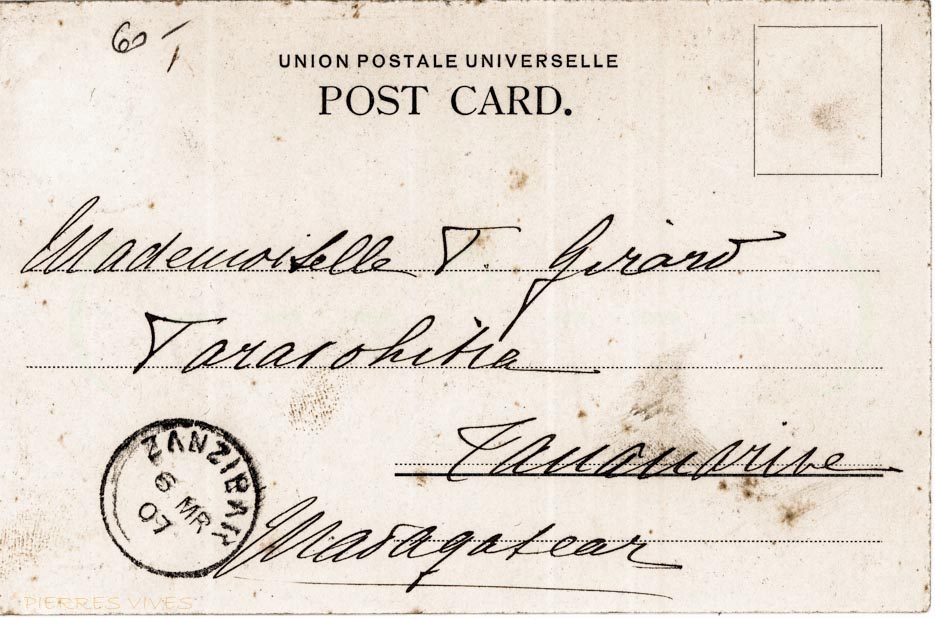 60 -
UNION POSTALE UNIVERSELLE
POST CARD.
Mademoiselle T. Girard
Tananarive
Madagascar
ZANZIBAR
6 MR
07
PIERRES VIVES